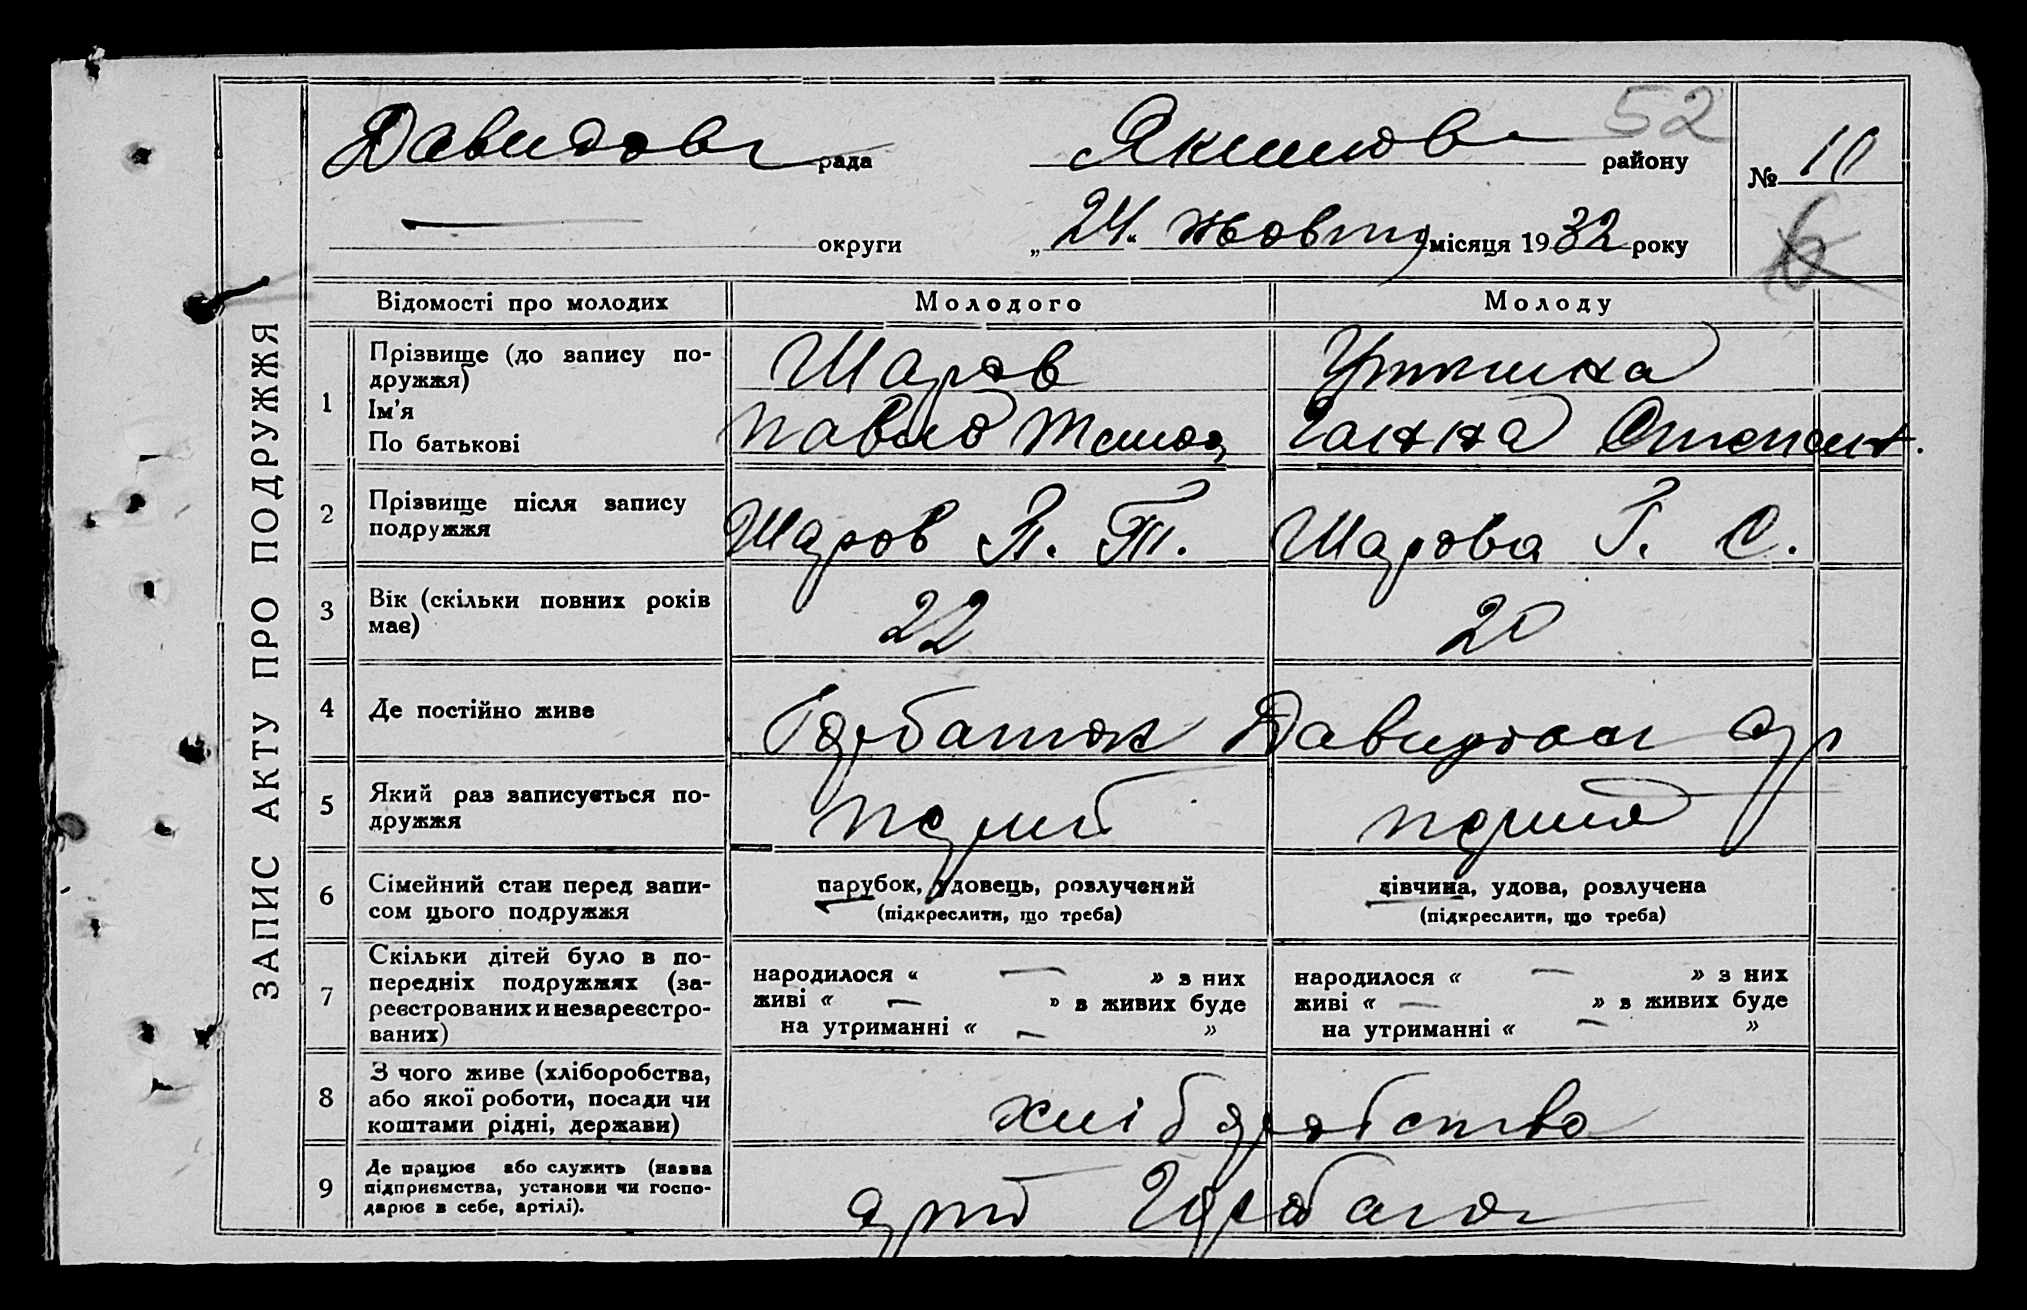 52
Давидов рада Якимов району № 10
округи „24“ жовтня місяця 1932 року
6
ЗАПИС АКТУ ПРО ПОДРУЖЖЯ
Відомості про молодих Молодого Молоду
1 Прізвище (до запису по-
дружжя)
Ім'я
По батькові
Шаров
Павло Тимоф
Ганна Степан.
2 Прізвище після запису
подружжя
Шаров П. Т. Шарова Г. С.
3 Вік (скільки повних років
має)
22 20
4 Де постійно живе
Давидов
5 Який раз записується по-
дружжя
перший перший
6 Сімейний стан перед запи-
сом цього подружжя
парубок, удовець, розлучений
(підкреслити, що треба)
дівчина, удова, розлучена
(підкреслити, що треба)
7 Скільки дітей було в по-
передніх подружжях (за-
реєстрованих и незареєстро-
ваних)
народилося « — » з них
живі « — » в живих буде
на утриманні « — »
народилося « — » з них
живі « — » в живих буде
на утриманні « — »
8 З чого живе (хліборобства,
або якої роботи, посади чи
коштами рідні, держави)
хліборобство
9 Де працює або служить (назва
підприємства, установи чи госпо-
дарює в себе, артілі).